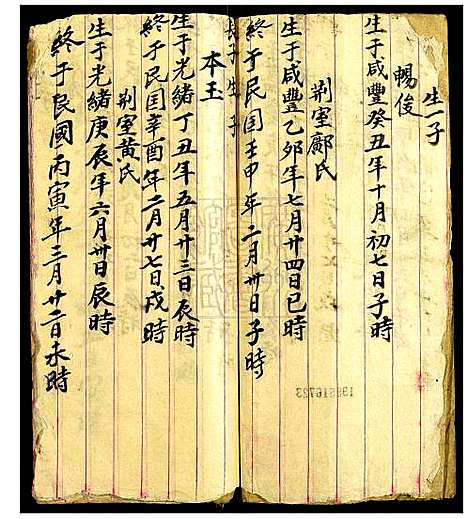 生一子
暢俊
生于咸豐癸丑年十月初七日子時
荆室鄺氏
生于咸豐乙卯年七月廿四日巳時
終于民国壬申年二月卅日子時
長子生子
本玉
生于光緒丁丑年五月廿三日辰時
終于民国辛酉年二月廿七日戌時
荆室黄氏
生于光緒庚辰年六月卅日辰時
終于民國丙寅年三月廿二日未時
138616723